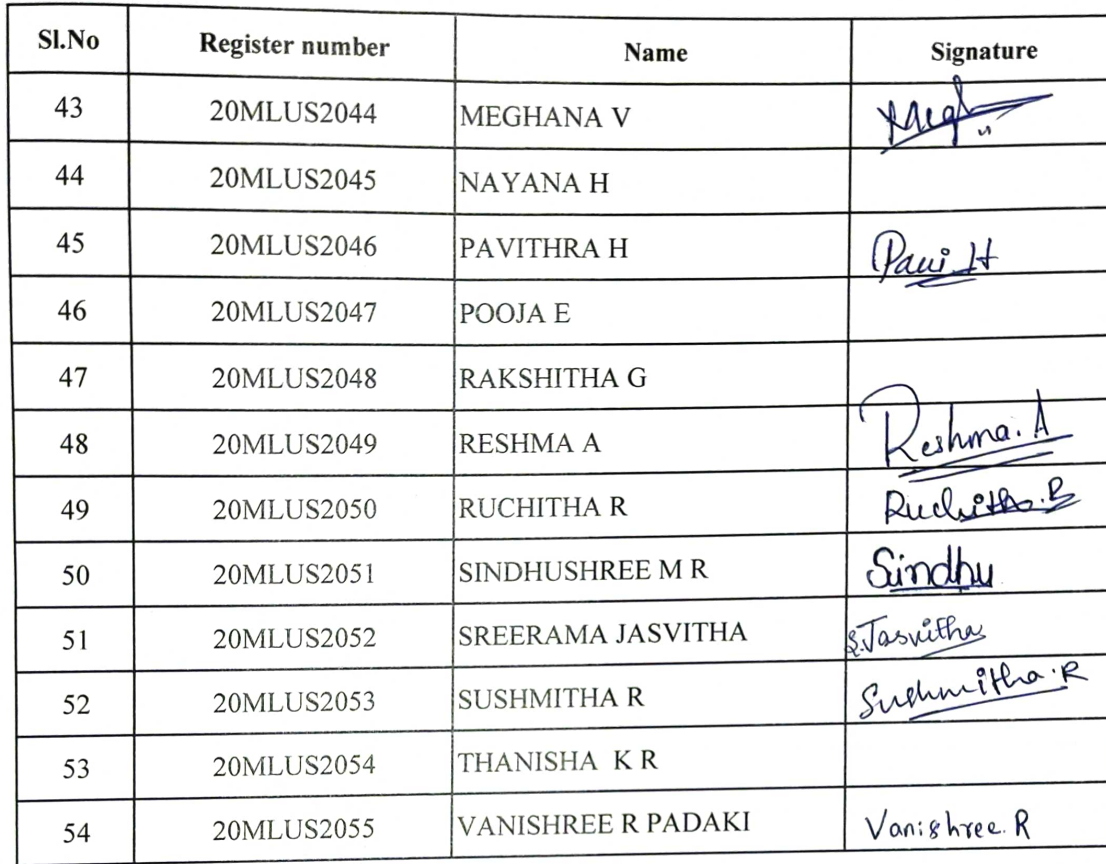 Sl.No Register number Name Signature
43 20MLUS2044 MEGHANA V Megh
44 20MLUS2045 NAYANA H
45 20MLUS2046 PAVITHRA H Pavi.H
46 20MLUS2047 POOJA E
47 20MLUS2048 RAKSHITHA G
48 20MLUS2049 RESHMA A Reshma. A
49 20MLUS2050 RUCHITHA R Ruchitha.R
50 20MLUS2051 SINDHUSHREE M R Sindhu
51 20MLUS2052 SREERAMA JASVITHA S.Jasvitha
52 20MLUS2053 SUSHMITHA R Sushmitha.R
53 20MLUS2054 THANISHA K R
54 20MLUS2055 VANISHREE R PADAKI Vanishree. R